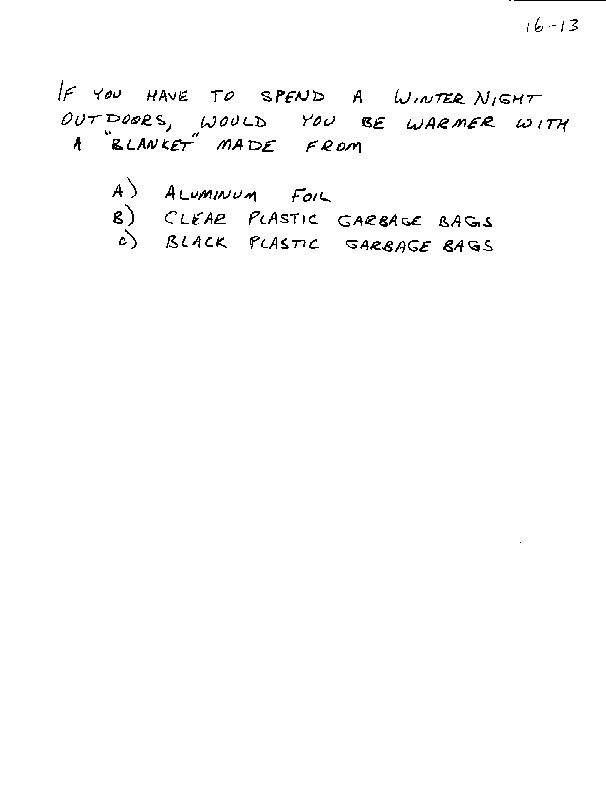 16-13
IF YOU HAVE TO SPEND A WINTER NIGHT
OUTDOORS, WOULD YOU BE WARMER WITH
A "BLANKET" MADE FROM
A) ALUMINUM FOIL
B) CLEAR PLASTIC GARBAGE BAGS
C) BLACK PLASTIC GARBAGE BAGS